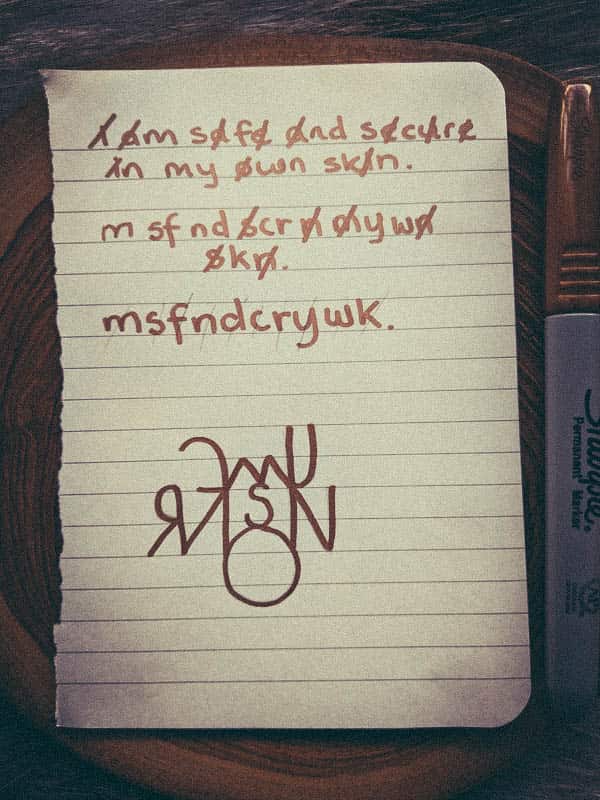 I am safe and secure
in my own skin.
m sf nd scr n my wn
skn.
msfndcrywk.
Sharpie.
Permanent Marker